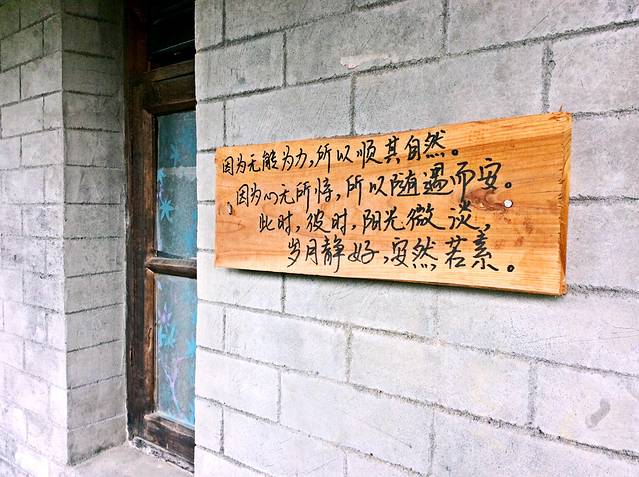 因为无能为力,所以顺其自然。
因为心无所恃,所以随遇而安。
此时,彼时,阳光微淡,
岁月静好,安然若素。